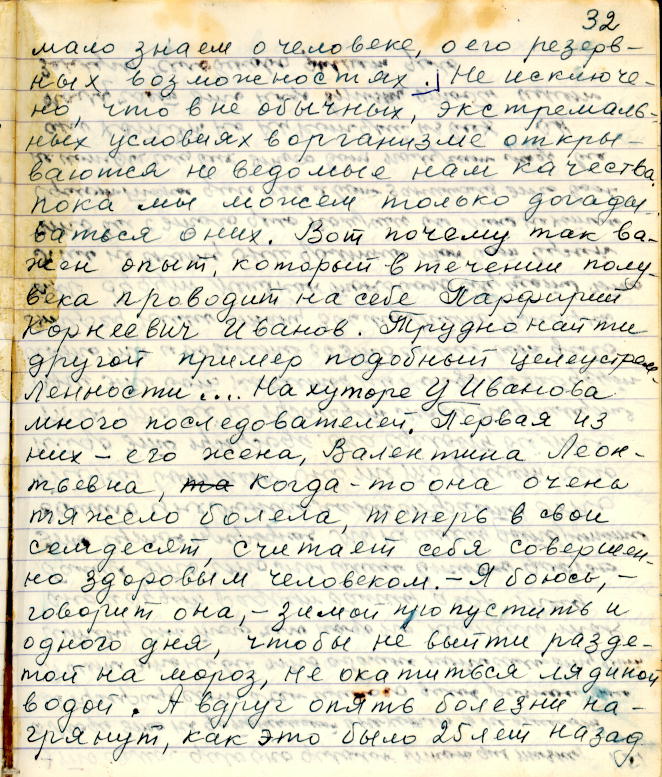 32
мало знаем о человеке, о его резерв-
ных возможностях. Не исключе-
но, что в не обычных, экстремаль-
ных условиях в организме откры-
ваются не ведомые нам качества.
пока мы можем только догады-
ваться о них. Вот почему так ва-
жен опыт, который в течении полу-
века проводит на себе Парфирий
Корнеевич Иванов. Трудно найти
другой пример подобный целеустрем-
ленности.... На хуторе У Иванова
много последователей. Первая из
них – его жена, Валентина Леон-
тьевна, та когда-то она очень
тяжело болела, теперь в свои
семдесят, считает себя совершен-
но здоровым человеком. – Я боюсь, –
говорит она, – зимой пропустить и
одного дня, чтобы не выйти разде-
той на мороз, не окатиться лядиной
водой. А вдруг опять болезни на-
грянут, как это было 25 лет назад.